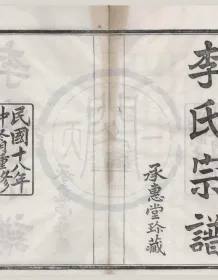 李氏宗譜
承惠堂珍藏
民國十八年
仲春重修